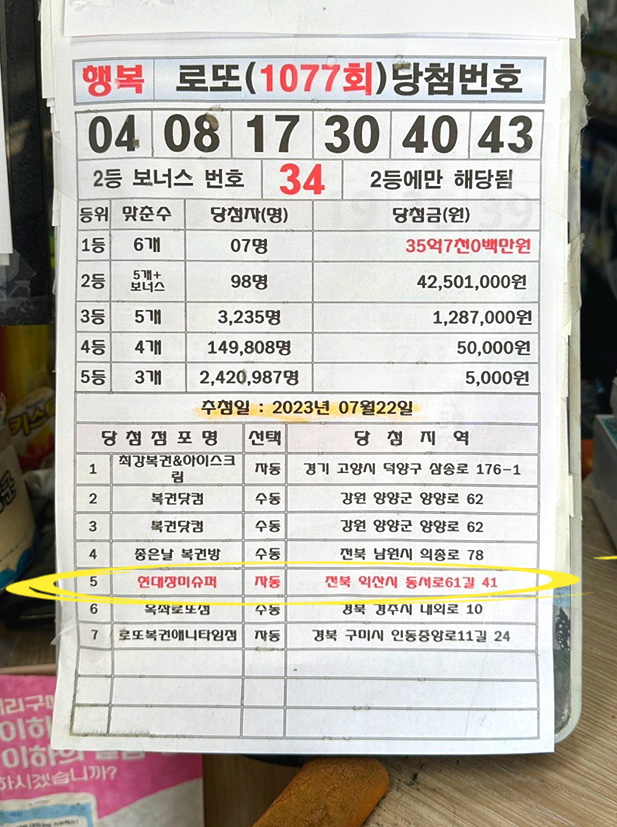 행복 로또(1077회)당첨번호
04 08 17 30 40 43
2등 보너스 번호 34 2등에만 해당됨
등위 맞춘수 당첨자(명) 당첨금(원)
1등 6개 07명 35억7천0백만원
2등 5개+보너스 98명 42,501,000원
3등 5개 3,235명 1,287,000원
4등 4개 149,808명 50,000원
5등 3개 2,420,987명 5,000원
추첨일 : 2023년 07월22일
당첨점포명 선택 당첨지역
1 최강복권&아이스크림 자동 경기 고양시 덕양구 삼송로 176-1
2 복권닷컴 수동 강원 양양군 양양로 62
3 복권닷컴 수동 강원 양양군 양양로 62
4 좋은날 복권방 수동 전북 남원시 의총로 78
5 현대장미슈퍼 자동 전북 익산시 동서로61길 41
6 옥좌로또점 수동 경북 경주시 내외로 10
7 로또복권애니타임점 자동 경북 구미시 인동중앙로11길 24
이하
이하의
하시겠습니까?